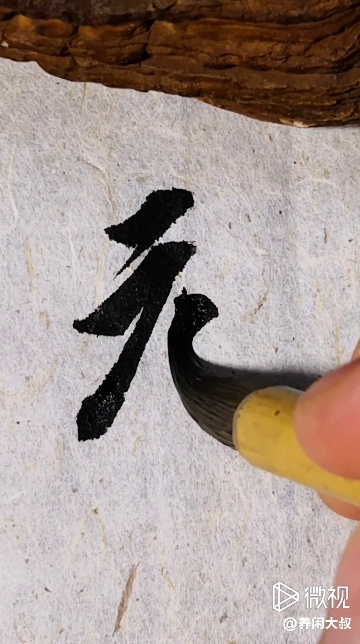 元
微视
@养闲大叔